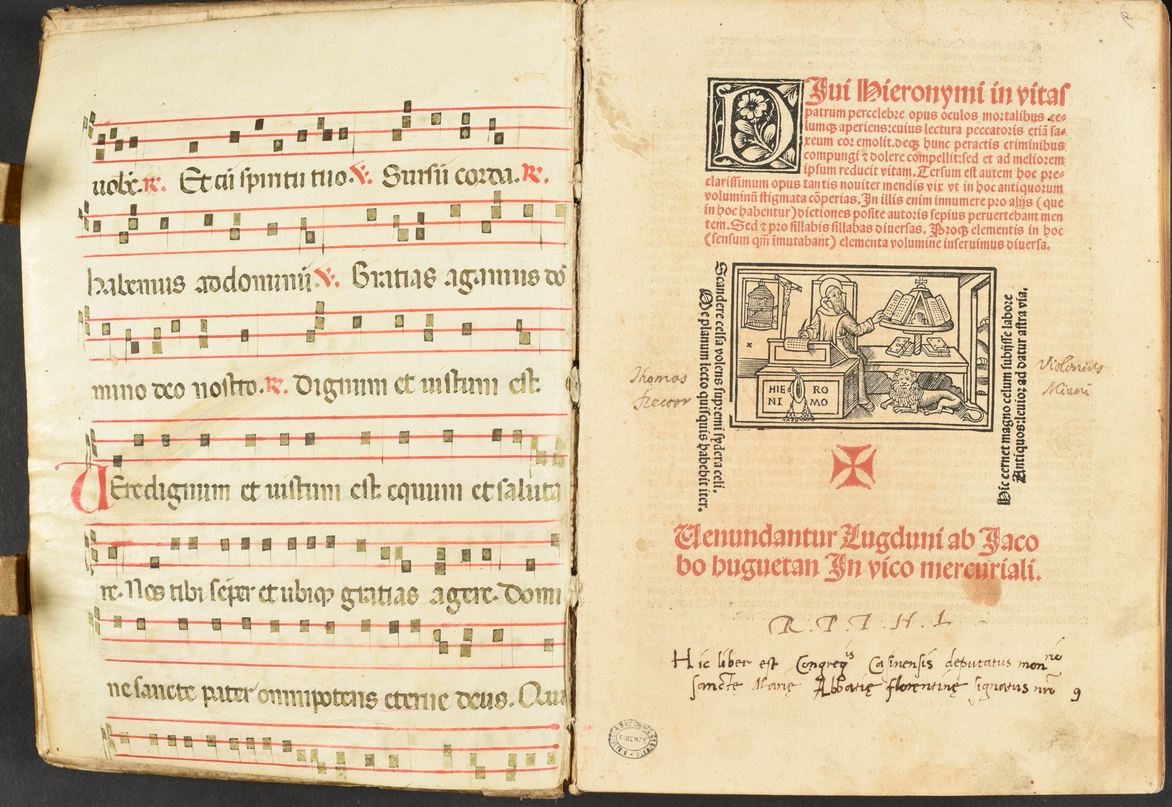 uobꝭ. ℟. Et cū spiritu tuo. ℣. Sursū corda. ℟.
habemus ad dominū ℣. Gratias agamus dō
mino deo nostro. ℟. Dignum et iustum est.
VEre dignum et iustum est equum et saluta
re. Nos tibi semꝑ et ubiqꝫ gratias agere. Domi
ne sancte pater omnipotens eterne deus. Qui
DJui Hieronymi in vitas
patrum percelebre opus oculos mortalibus ce-
lumqꝫ aperiens: cuius lectura peccatoris etiā sa-
xeum cor emolit. deqꝫ hunc peractis criminibus
compungi ⁊ dolere compellit: sed et ad meliorem
ipsum reducit vitam. Tersum est autem hoc pre-
clarissimum opus tantis nouiter mendis vix vt in hoc antiquorum
voluminū stigmata cōperias. In illis enim innumere pro alijs (que
in hoc habentur) dictiones posite autoris sepius peruertebant men
tem. Sed ⁊ pro sillabis sillabas diuersas. Proqꝫ elementis in hoc
(sensum qm̄ īmutabant) elementa volumine inseruimus diuersa.
Scandere celsa volens supremi sydera celi.
Me planum lecto quisquis habebit iter.
HIE RO
NI MO
Hic cernet magno celum subijsse labore
Antiquos: leuior ad datur astra via.
Thomas
Rector
Venundantur Lugduni ab Jaco
bo huguetan In vico mercuriali.
R. P. T. H. L
Hic liber est Congreg̅is Casinensis deputatus mon̅rio
sancte Marię Abbatię florentinę signatus nro 9
FIRENZE